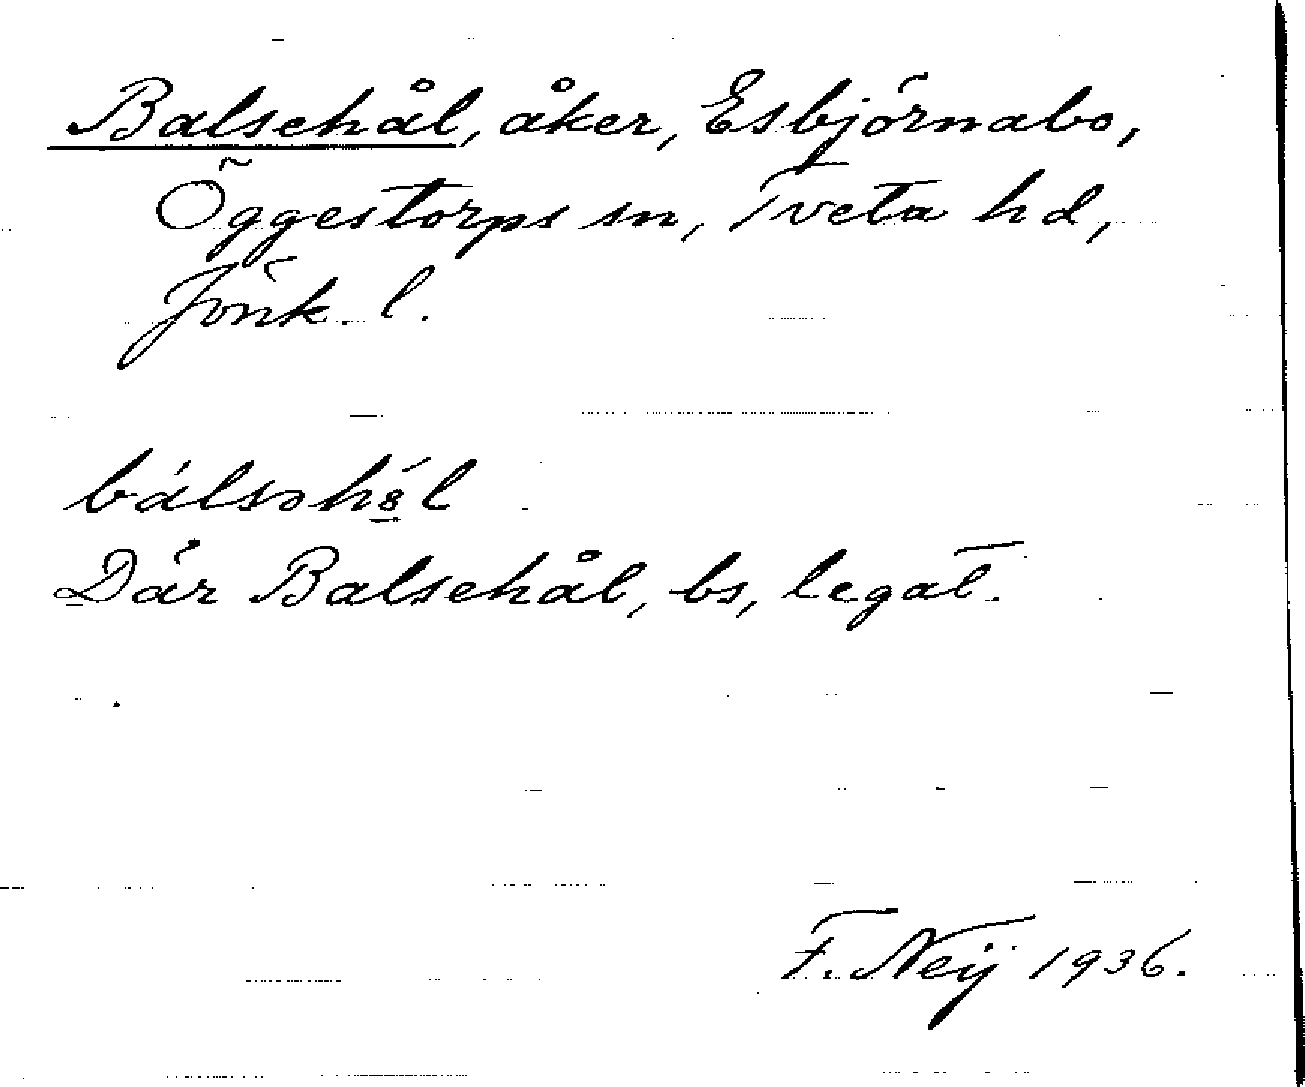 Balsehål, åker, Esbjörnabo,
Öggestorps sn, Tveta hd,
Jönk. l.
Där Balsehål, bs, legat.
F. Neij 1936.